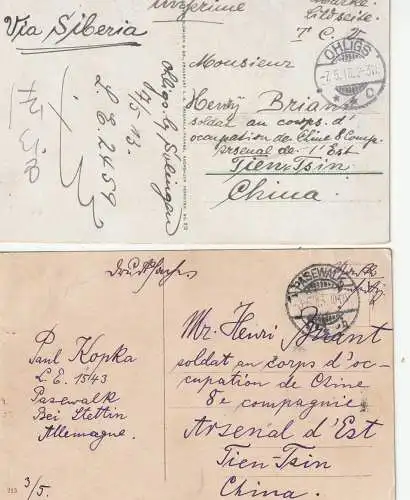 Unfrime
Via Siberia
T. C. V.
Ohligs b. Solingen
7/5 13.
L. E. 2459
OHLIGS
Monsieur
Henry Briant
soldat au corps. d'
occupation de Chine 8 Comp.
Arsenal de l'Est
Tien-Tsin
China.
Drucksache
PASEWALK
Mr. Henri Briant
soldat au corps d'oc-
cupation de Chine
8e compagnie
Arsenal d'Est
Tien-Tsin
China.
Paul Kopka
L.E. 1543
Pasewalk
Bei Stettin
Allemagne.
3/5.